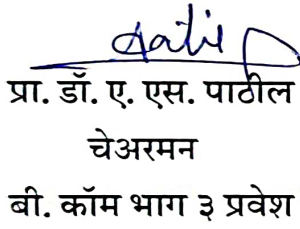 प्रा. डॉ. ए. एस. पाठील
चेअरमन
बी. कॉम भाग ३ प्रवेश